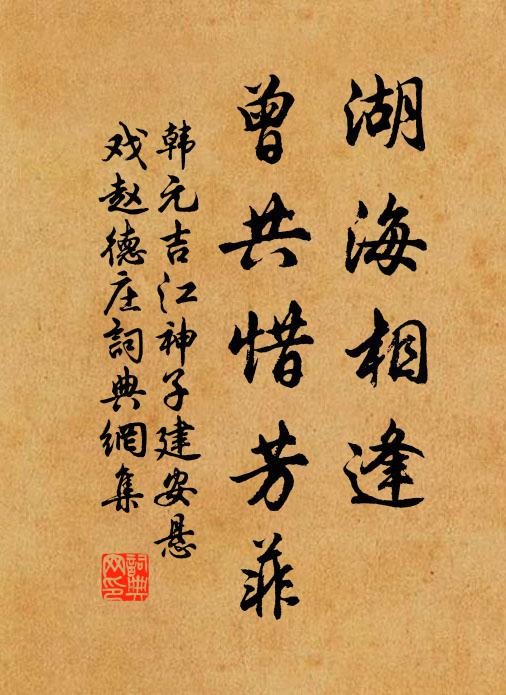 湖海相逢
曾共惜芳菲
韩元吉江神子建安悬
戏赵德庄詞典網集
詞典
网印